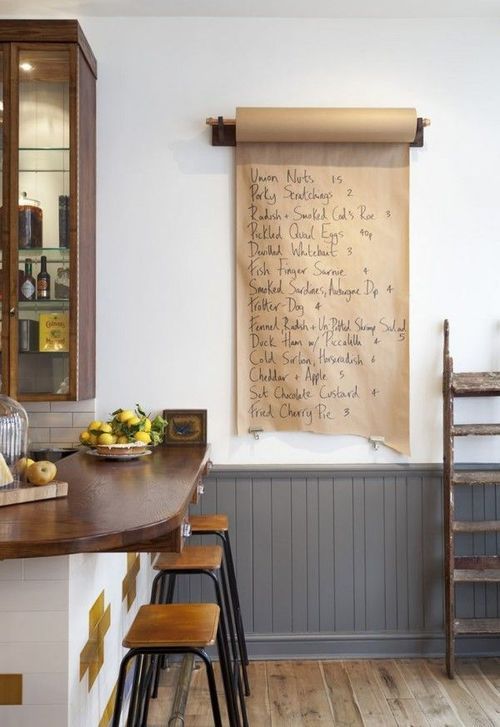 Union Nuts 1.5
Porky Scratchings 2
Radish + Smoked Cod's Roe 3
Pickled Quail Eggs 40p
Devilled Whitebait 3
Fish Finger Sarnie 4
Smoked Sardines, Aubergine Dip 4
Trotter Dog 4
Fennel Radish + Un-Potted Shrimp Salad 5
Duck Ham w/ Piccalilli 4
Cold Sirloin, Horseradish 6
Cheddar + Apple 5
Set Chocolate Custard 4
Fried Cherry Pie 3